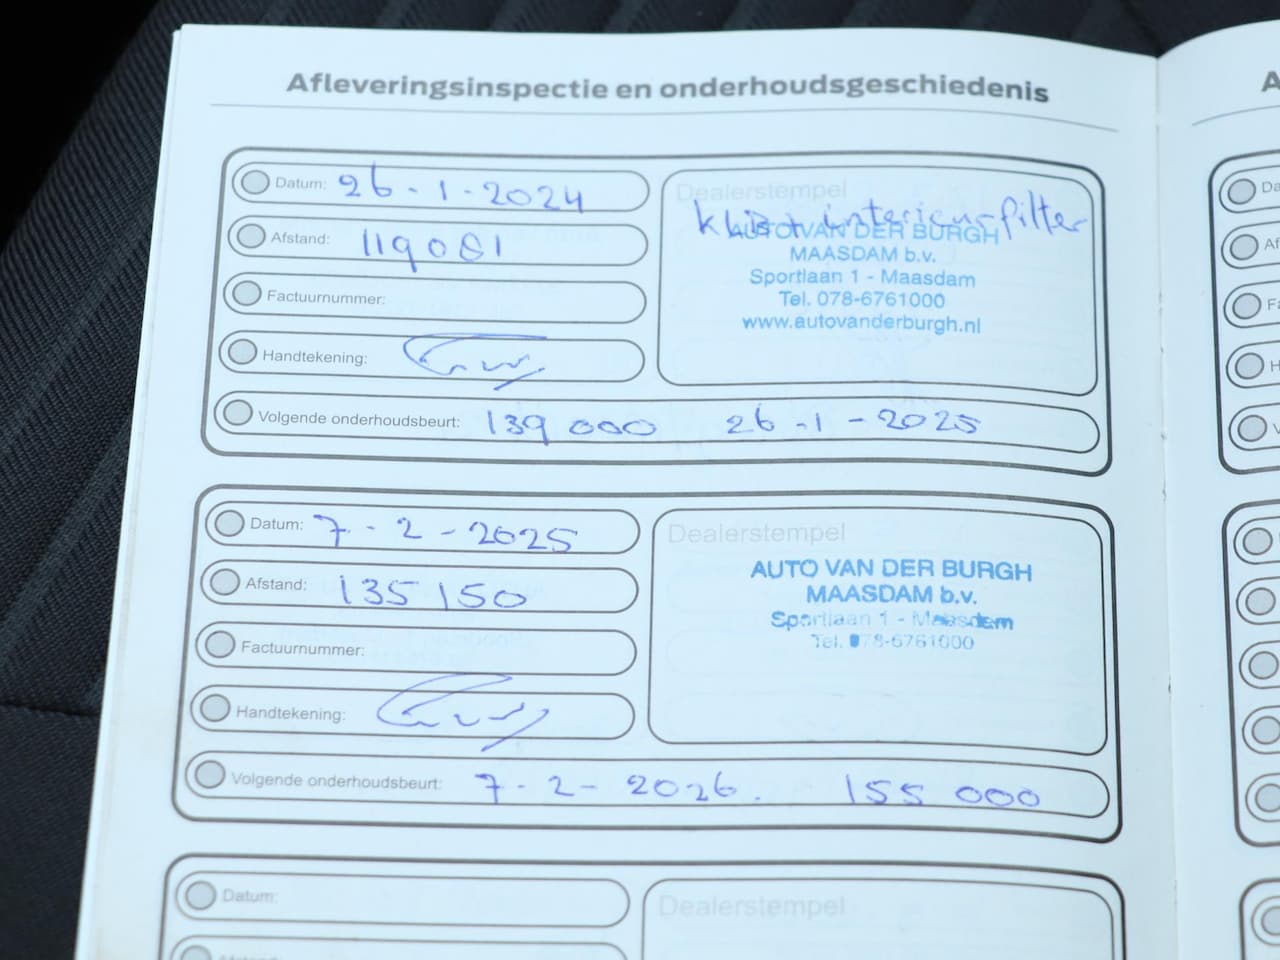 Afleveringsinspectie en onderhoudsgeschiedenis
Datum: 26-1-2024
Afstand: 119081
Factuurnummer:
Handtekening:
Volgende onderhoudsbeurt: 139 000 26-1-2025
Dealerstempel
+ interieurfilter
AUTO VAN DER BURGH
MAASDAM b.v.
Sportlaan 1 - Maasdam
Tel. 078-6761000
www.autovanderburgh.nl
Datum: 7-2-2025
Afstand: 135 150
Factuurnummer:
Handtekening:
Volgende onderhoudsbeurt: 7-2-2026. 155 000
Dealerstempel
AUTO VAN DER BURGH
MAASDAM b.v.
Sportlaan 1 - Maasdam
Tel. 078-6761000
Datum:
Dealerstempel